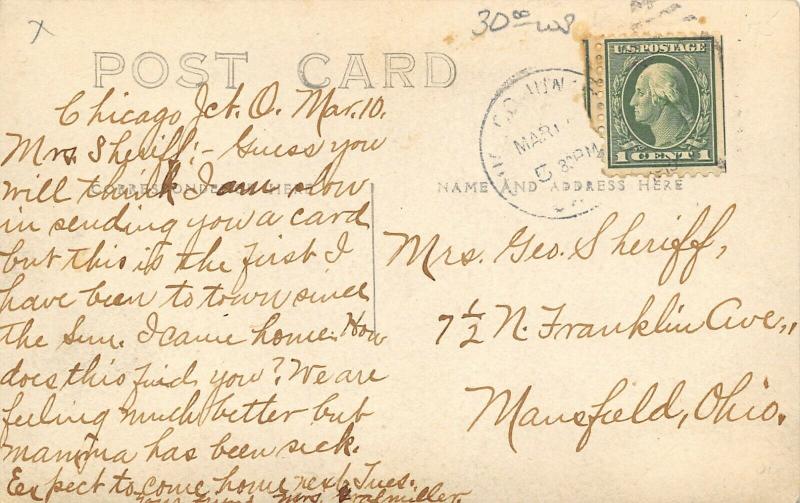 x
30⁰⁰ WS
POST CARD
U.S. POSTAGE
1 CENT 1
MAR
5 30 PM
CORRESPONDENCE HERE
NAME AND ADDRESS HERE
Chicago Jct. O. Mar. 10.
Mrs. Sheriff:- Guess you
will think I am slow
in sending you a card
but this is the first I
have been to town since
the Sun. I came home. How
does this find you? We are
feeling much better but
mamma has been sick.
Expect to come home next Tues.
Your friend Mrs.
Mrs. Geo. Sheriff,
7½ N. Franklin Ave.,
Mansfield, Ohio.